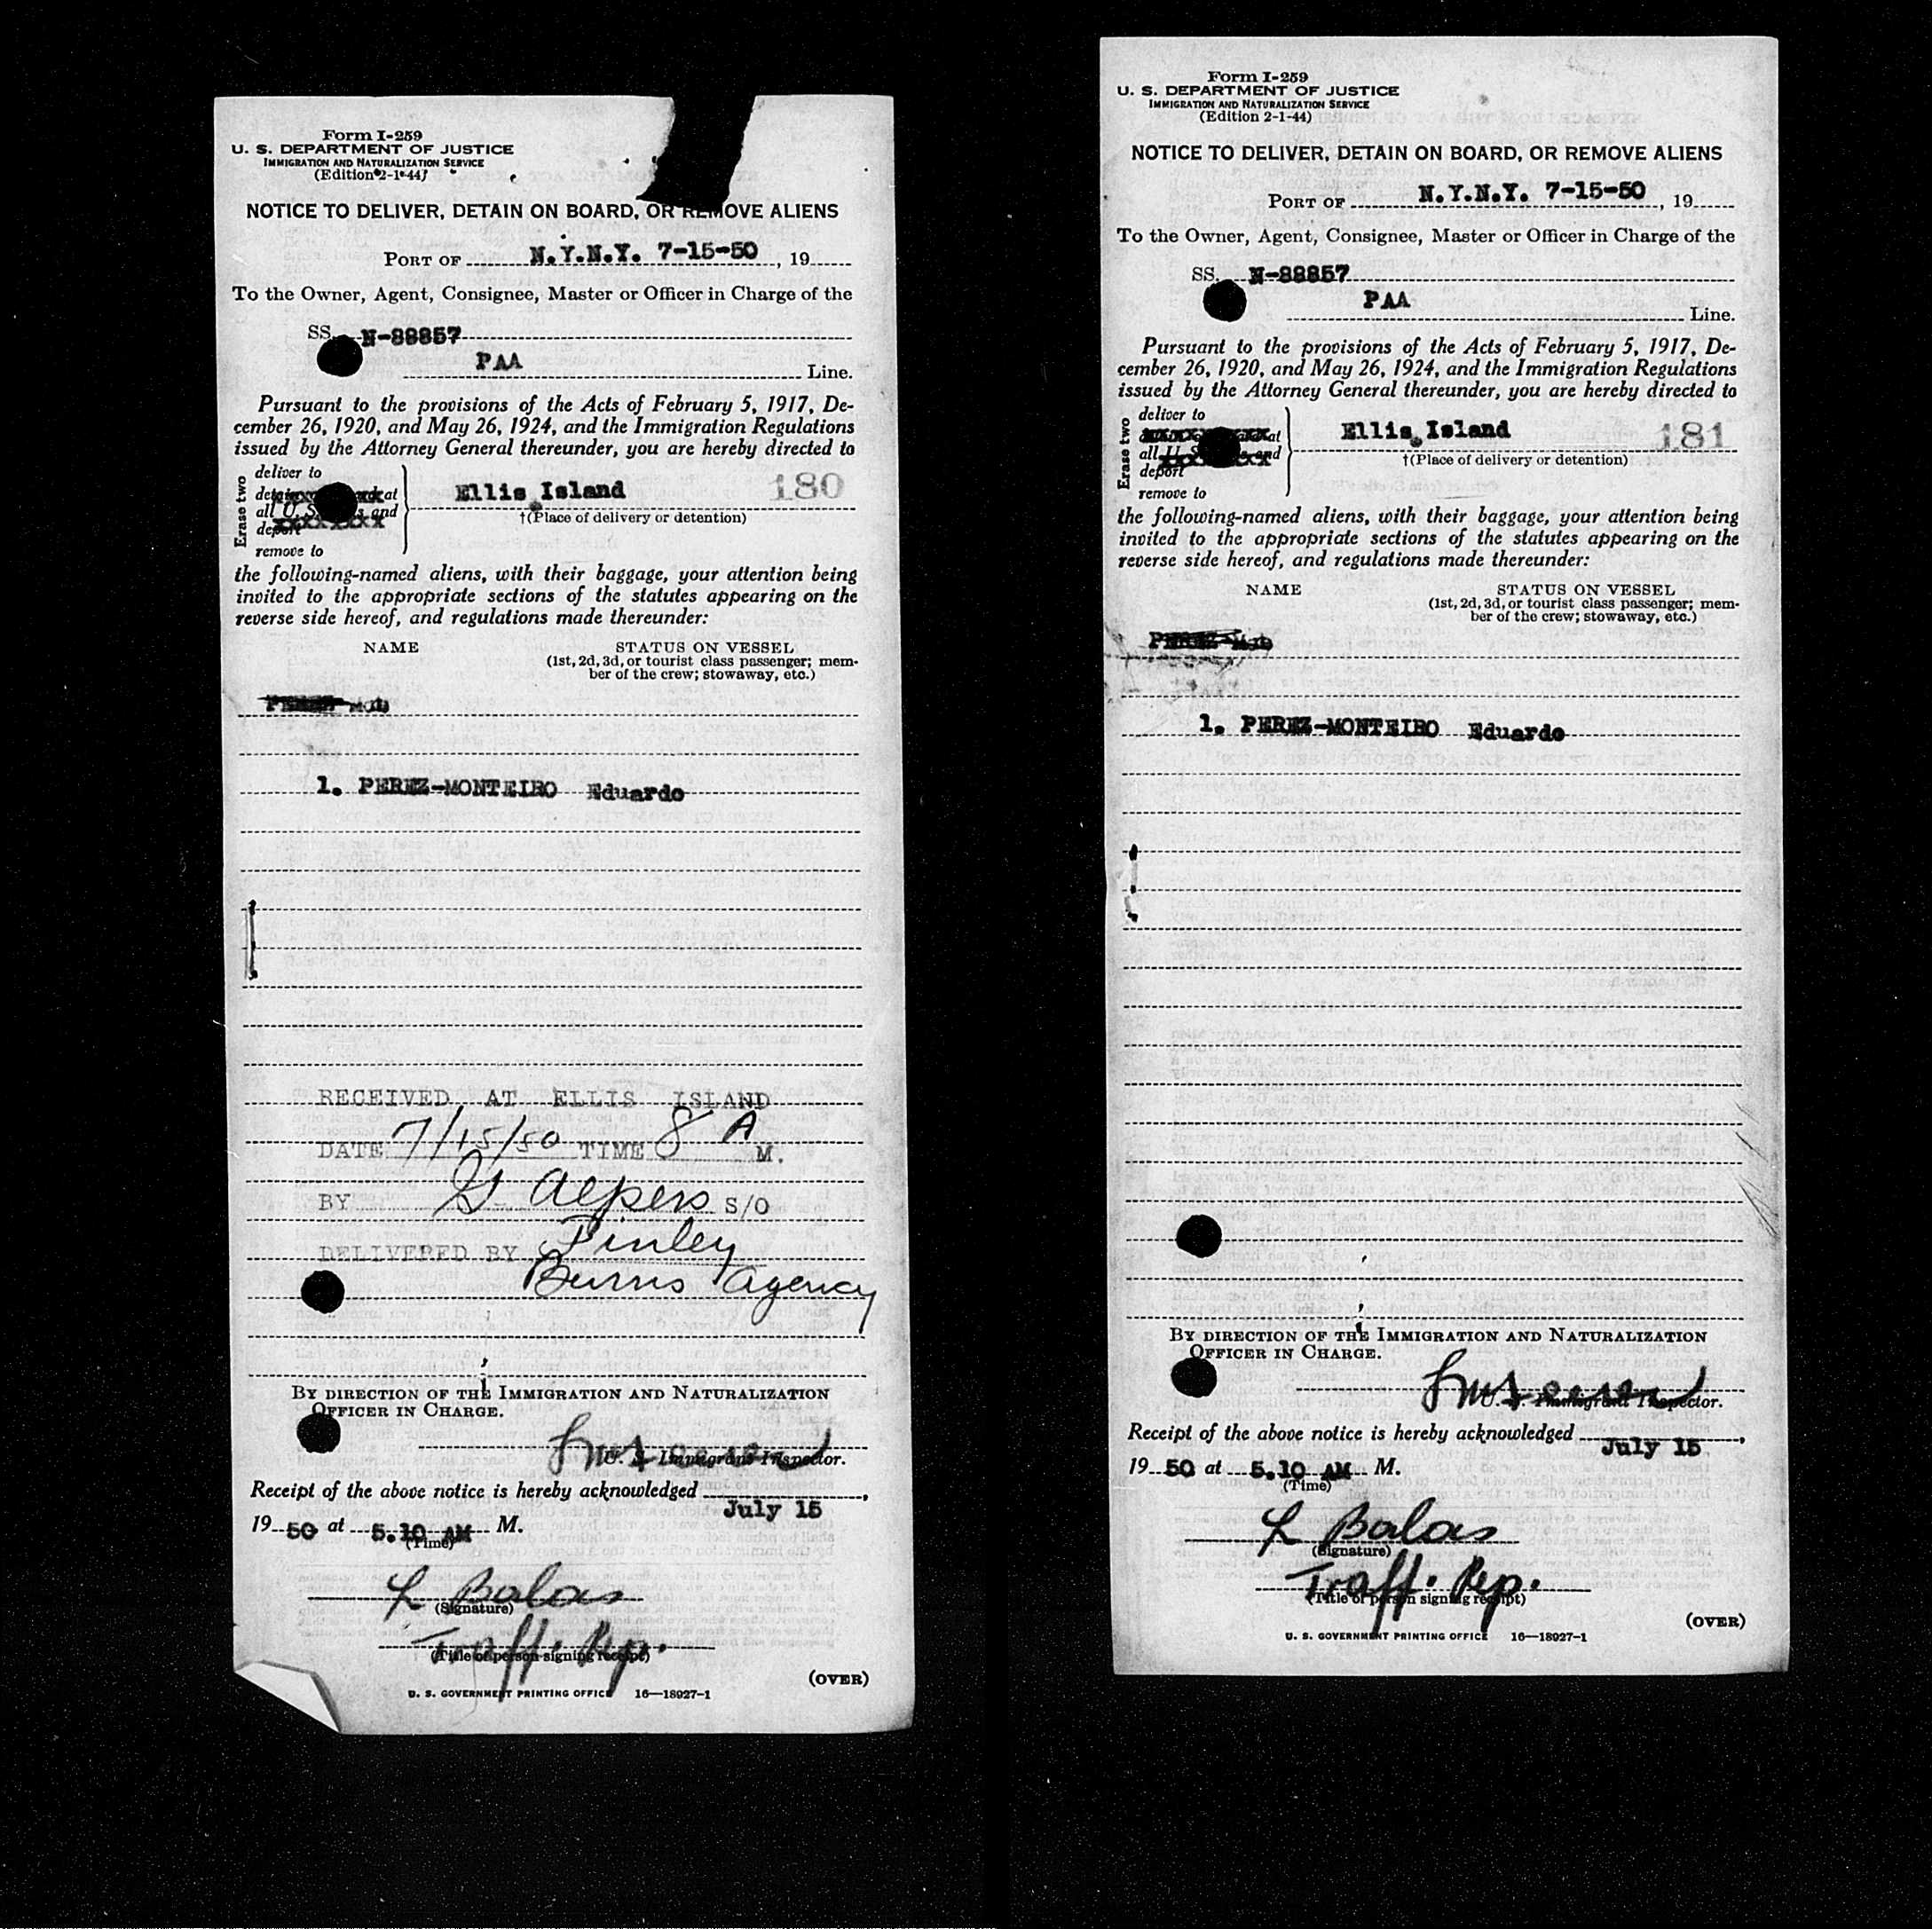 Form I-259
U. S. DEPARTMENT OF JUSTICE
IMMIGRATION AND NATURALIZATION SERVICE
(Edition 2-1-44)
NOTICE TO DELIVER, DETAIN ON BOARD, OR REMOVE ALIENS
PORT OF N.Y.N.Y. 7-15-50, 19
To the Owner, Agent, Consignee, Master or Officer in Charge of the
SS. N-88857
PAA Line.
Pursuant to the provisions of the Acts of February 5, 1917, De-
cember 26, 1920, and May 26, 1924, and the Immigration Regulations
issued by the Attorney General thereunder, you are hereby directed to
Erase two
deliver to
at
all U. S. and
deport
remove to
Ellis Island 180
†(Place of delivery or detention)
the following-named aliens, with their baggage, your attention being
invited to the appropriate sections of the statutes appearing on the
reverse side hereof, and regulations made thereunder:
NAME STATUS ON VESSEL
(1st, 2d, 3d, or tourist class passenger; mem-
ber of the crew; stowaway, etc.)
1. PEREZ-MONTEIRO Eduardo
RECEIVED AT ELLIS ISLAND
DATE 7/15/50 TIME 8 A M.
BY G Alpers S/O
DELIVERED BY Finley
Burns Agency
BY DIRECTION OF THE IMMIGRATION AND NATURALIZATION
OFFICER IN CHARGE.
U. S. Immigrant Inspector.
Receipt of the above notice is hereby acknowledged July 15,
19 50 at 5.10 AM M.
(Time)
L Balas
(Signature)
Traff. Rep.
(Title of person signing receipt)
(OVER)
U. S. GOVERNMENT PRINTING OFFICE 16—18927-1
Form I-259
U. S. DEPARTMENT OF JUSTICE
IMMIGRATION AND NATURALIZATION SERVICE
(Edition 2-1-44)
NOTICE TO DELIVER, DETAIN ON BOARD, OR REMOVE ALIENS
PORT OF N.Y.N.Y. 7-15-50, 19
To the Owner, Agent, Consignee, Master or Officer in Charge of the
SS. N-88857
PAA Line.
Pursuant to the provisions of the Acts of February 5, 1917, De-
cember 26, 1920, and May 26, 1924, and the Immigration Regulations
issued by the Attorney General thereunder, you are hereby directed to
Erase two
deliver to
at
all U. S. and
deport
remove to
Ellis Island 181
†(Place of delivery or detention)
the following-named aliens, with their baggage, your attention being
invited to the appropriate sections of the statutes appearing on the
reverse side hereof, and regulations made thereunder:
NAME STATUS ON VESSEL
(1st, 2d, 3d, or tourist class passenger; mem-
ber of the crew; stowaway, etc.)
1. PEREZ-MONTEIRO Eduardo
BY DIRECTION OF THE IMMIGRATION AND NATURALIZATION
OFFICER IN CHARGE.
U. S. Immigrant Inspector.
Receipt of the above notice is hereby acknowledged July 15,
19 50 at 5.10 AM M.
(Time)
L Balas
(Signature)
Traff. Rep.
(Title of person signing receipt)
(OVER)
U. S. GOVERNMENT PRINTING OFFICE 16—18927-1